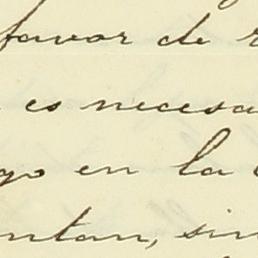 favor de
es necesa
go en la
ntan, sin